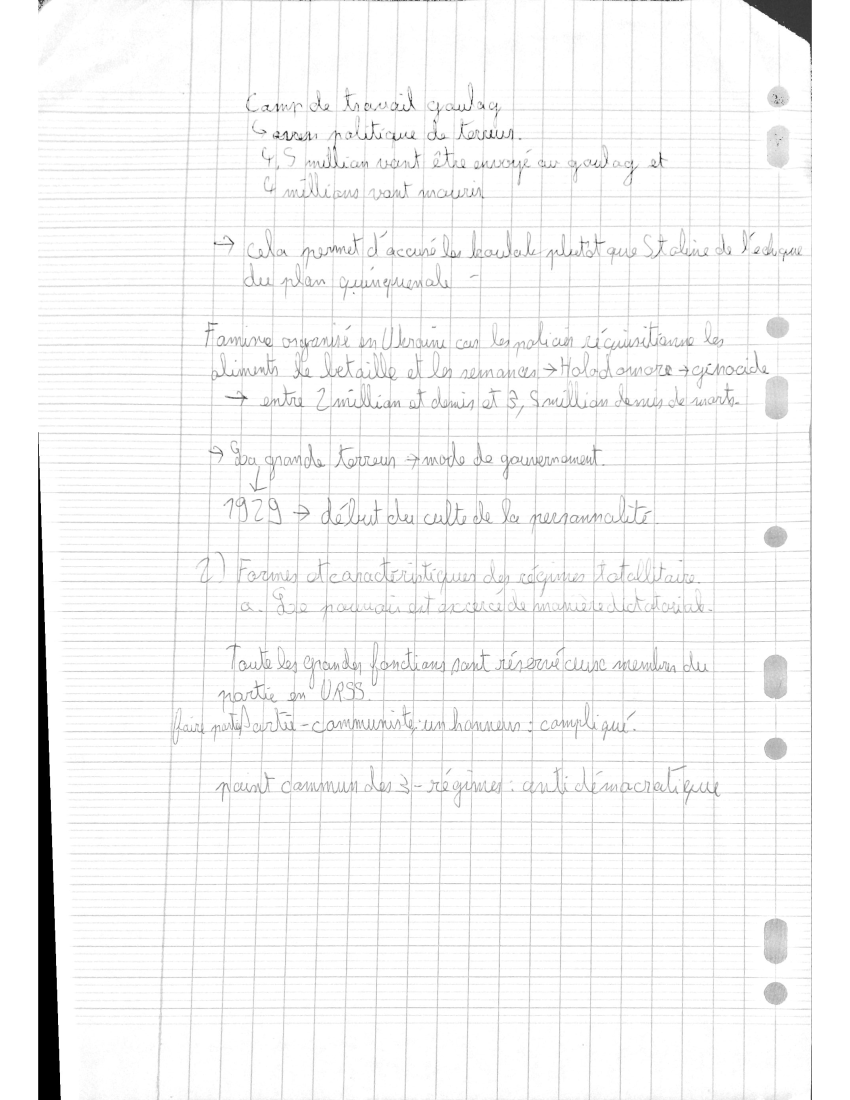 Camp de travail goulag
↳ avec politique de terreur.
4,5 million vont être envoyé au goulag et
4 millions vont mourir
→ cela permet d'accusé les koulak plutot que Staline de l'echque
du plan quinquenale -
Famine organisé en Ukraine car les policier réquisitionne les
aliments de betaille et les semances → Holodomore → génocide
→ entre 2 million et demis et 3,5 million demis de morts.
→ La grande terreur → mode de gouvernement.
↓
1929 → début du culte de la personnalité.
2) Formes et caractéristiques des régimes totallitaire.
a. Le pouvoir est excercé de manière dictatorial.
Toute les grandes fonctions sont réservé aux membres du
partie en URSS.
faire partie Partie-communiste: un honneur : compliqué.
point commun des 3-régimes : anti démocratique